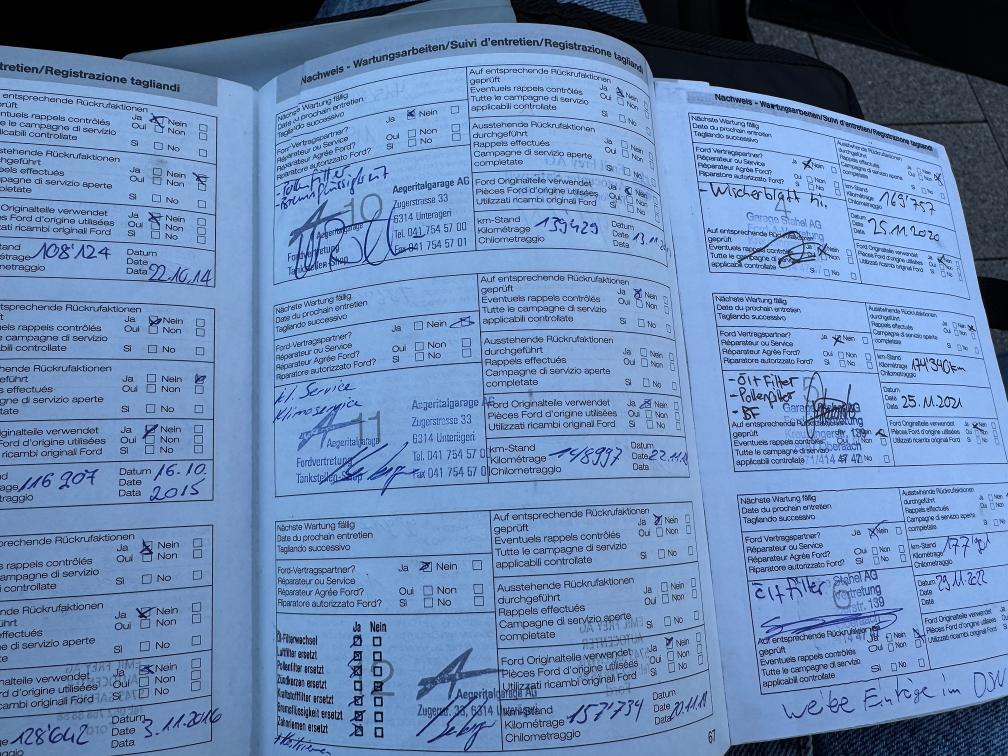 tretien/Registrazione tagliandi
entsprechende Rückrufaktionen
Eventuels rappels contrôlés
Ja Nein
Oui Non
le campagne di servizio
controllate
Si No
Rückrufaktionen
Rappels effectués
campagne di servizio aperte
completate
Originalteile verwendet
Ford d'origine utilisées
ricambi originali Ford
108'124
Datum
Date
Data 22.10.14
entsprechende Rückrufaktionen
rappels contrôlés
Ja Nein
Oui Non
campagne di servizio
controllate
Si No
Ja Nein
Oui Non
Si No
Originalteile verwendet
Ford d'origine utilisées
ricambi originali Ford
116207
Datum 16.10.
Date 2015
Data
Ja Nein
Oui Non
campagne di servizio
Si No
Rückrufaktionen
campagne di servizio aperte
128'642
Datum
Date
Data 3.11.2016
Nachweis - Wartungsarbeiten/Suivi d'entretien/Registrazione tagliandi
Nächste Wartung fällig
Date du prochain entretien
Tagliando successivo
Ford Vertragspartner?
Réparateur ou Service
Réparateur Agrée Ford?
Riparatore autorizzato Ford?
Ja Nein
Oui Non
Si No
- Pollenfilter
- Bremsflüssigkeit
10
Aegeritalgarage
Fordvertretung
Tankstellen-Shop
Aegeritalgarage AG
Zugerstrasse 33
6314 Unterägeri
Tel. 041 754 57 01
Fax 041 754 57 00
Auf entsprechende Rückrufaktionen
geprüft
Eventuels rappels contrôlés
Tutte le campagne di servizio
applicabili controllate
Ja Nein
Oui Non
Si No
Ausstehende Rückrufaktionen
durchgeführt
Rappels effectués
Campagne di servizio aperte
completate
Ford Originalteile verwendet
Pièces Ford d'origine utilisées
Utilizzati ricambi originali Ford
km-Stand
Kilométrage 139429
Chilometraggio
Datum
Date
Data
Nächste Wartung fällig
Date du prochain entretien
Tagliando successivo
Ford-Vertragspartner?
Réparateur ou Service
Réparateur Agrée Ford?
Riparatore autorizzato Ford?
Ja Nein
Oui Non
Si No
kl. Service
Klimaservice
11
Aegeritalgarage
Fordvertretung
Tankstellen-Shop
Aegeritalgarage AG
Zugerstrasse 33
6314 Unterägeri
Tel. 041 754 57 0
Fax 041 754 57 0
Auf entsprechende Rückrufaktionen
geprüft
Eventuels rappels contrôlés
Tutte le campagne di servizio
applicabili controllate
Ja Nein
Oui Non
Si No
Ausstehende Rückrufaktionen
durchgeführt
Rappels effectués
Campagne di servizio aperte
completate
Ford Originalteile verwendet
Pièces Ford d'origine utilisées
Utilizzati ricambi originali Ford
km-Stand
Kilométrage 148997
Chilometraggio
Datum
Date
Data
Nächste Wartung fällig
Date du prochain entretien
Tagliando successivo
Ford-Vertragspartner?
Réparateur ou Service
Réparateur Agrée Ford?
Riparatore autorizzato Ford?
Ja Nein
Oui Non
Si No
Ja Nein
Öl-Filterwechsel
Luftfilter ersetzt
Pollenfilter ersetzt
Zündkerzen ersetzt
Kraftstofffilter ersetzt
Bremsflüssigkeit ersetzt
Zahnriemen ersetzt
12
Aegeritalgarage AG
Zugerstr. 33, 6314 Unterägeri
Auf entsprechende Rückrufaktionen
geprüft
Eventuels rappels contrôlés
Tutte le campagne di servizio
applicabili controllate
Ja Nein
Oui Non
Si No
Ausstehende Rückrufaktionen
durchgeführt
Rappels effectués
Campagne di servizio aperte
completate
Ford Originalteile verwendet
Pièces Ford d'origine utilisées
Utilizzati ricambi originali Ford
km-Stand
Kilométrage 157'734
Chilometraggio
Datum
Date
Data 20.11.19
67
Nachweis - Wartungsarbeiten/Suivi d'entretien/Registrazione tagliandi
Nächste Wartung fällig
Date du prochain entretien
Tagliando successivo
Ford Vertragspartner?
Réparateur ou Service
Réparateur Agrée Ford?
Riparatore autorizzato Ford?
Ja Nein
Oui Non
Si No
- Wischerblatt hi.
Garage Stahel AG
Fordvertretung
Auf entsprechende Rückrufaktionen
geprüft
Eventuels rappels contrôlés
Tutte le campagne di servizio
applicabili controllate
Ausstehende Rückrufaktionen
durchgeführt
Rappels effectués
Campagne di servizio aperte
completate
km-Stand
Kilométrage 169'757
Chilometraggio
Datum
Date 25.11.2020
Data
Ford Originalteile verwendet
Pièces Ford d'origine utilisées
Utilizzati ricambi originali Ford
Nächste Wartung fällig
Date du prochain entretien
Tagliando successivo
Ford Vertragspartner?
Réparateur ou Service
Réparateur Agrée Ford?
Riparatore autorizzato Ford?
- Öl+Filter
- Pollenfilter
- BF
Auf entsprechende Rückrufaktionen
geprüft
Eventuels rappels contrôlés
Tutte le campagne di servizio
applicabili controllate
Ausstehende Rückrufaktionen
durchgeführt
Rappels effectués
Campagne di servizio aperte
completate
km-Stand
Kilométrage 174'340km
Chilometraggio
Datum
Date 25.11.2021
Data
Ford Originalteile verwendet
Pièces Ford d'origine utilisées
Utilizzati ricambi originali Ford
Nächste Wartung fällig
Date du prochain entretien
Tagliando successivo
Ford Vertragspartner?
Réparateur ou Service
Réparateur Agrée Ford?
Riparatore autorizzato Ford?
Öl+Filter
Stahel AG
str. 139
Auf entsprechende Rückrufaktionen
geprüft
Eventuels rappels contrôlés
Tutte le campagne di servizio
applicabili controllate
Ausstehende Rückrufaktionen
durchgeführt
Rappels effectués
Campagne di servizio aperte
completate
km-Stand
Kilométrage
Chilometraggio
Datum
Date 29.11.2022
Data
Ford Originalteile verwendet
Pièces Ford d'origine utilisées
Utilizzati ricambi originali Ford
weitere Einträge im DSN